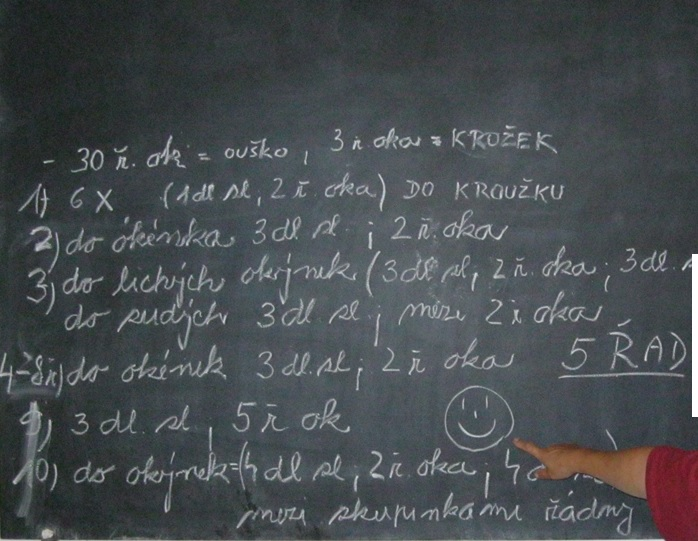 - 30 ř. ok = ouško, 3 ř. oka = KROŽEK
1) 6 X (1 dl sl, 2 ř. oka) DO KROUŽKU
2) do okénka 3 dl. sl. ; 2 ř. oka
3) do lichých okýnek (3 dl sl, 2 ř. oka ; 3 dl. s
do sudých 3 dl. sl ; mezi 2 ř oka
4-8ř) do okének 3 dl. sl ; 2 ř oka 5 ŘAD
9) 3 dl. sl, 5 ř ok
10) do okýnek = (4 dl sl, 2 ř. oka ; 4 d )
mezi skupinkami řádný